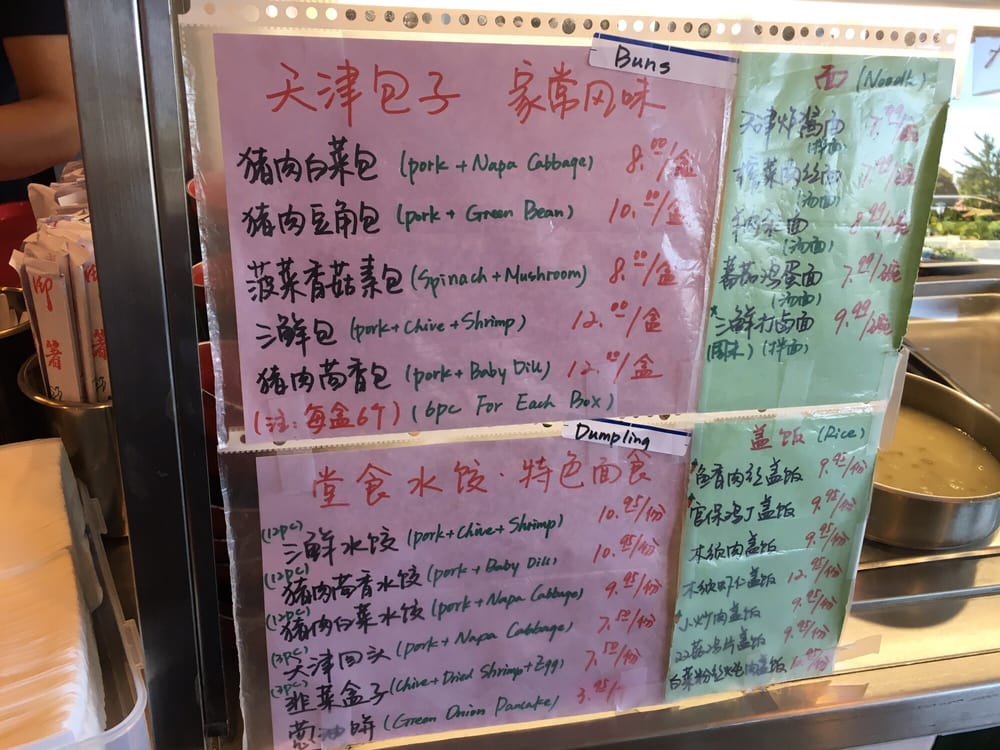 Buns
天津包子 家常风味
猪肉白菜包 (pork + Napa Cabbage) 8.00/盒
猪肉豆角包 (pork + Green Bean) 10.00/盒
菠菜香菇素包 (Spinach + Mushroom) 8.00/盒
三鲜包 (pork + Chive + Shrimp) 12.00/盒
猪肉茴香包 (pork + Baby Dill) 12.00/盒
(注: 每盒6个) (6pc For Each Box)
Dumpling
堂食水饺·特色面食
(12PC) 三鲜水饺 (pork + Chive + Shrimp) 10.95/份
(12PC) 猪肉茴香水饺 (pork + Baby Dill) 10.95/份
(12PC) 猪肉白菜水饺 (pork + Napa Cabbage) 9.95/份
(3PC) 天津回头 (pork + Napa Cabbage) 7.50/份
(3PC) 韭菜盒子 (Chive + Dried Shrimp + Egg) 7.50/份
葱油饼 (Green Onion Pancake) 3.95/
面 (Noodle)
天津炸酱面 7.99/碗
(拌面)
榨菜肉丝面 7.99/碗
(汤面)
面 8.99/碗
(汤面)
蕃茄鸡蛋面 7.99/碗
(汤面)
*三鲜打卤面 9.99/碗
(周末) (拌面)
盖饭 (Rice)
鱼香肉丝盖饭 9.95/份
宫保鸡丁盖饭 9.95/份
木须肉盖饭 9.95/份
木须虾仁盖饭 12.95/份
小炒肉盖饭 9.95/份
鸡片盖饭 9.95/份
白菜粉丝 肉盖饭
御箸